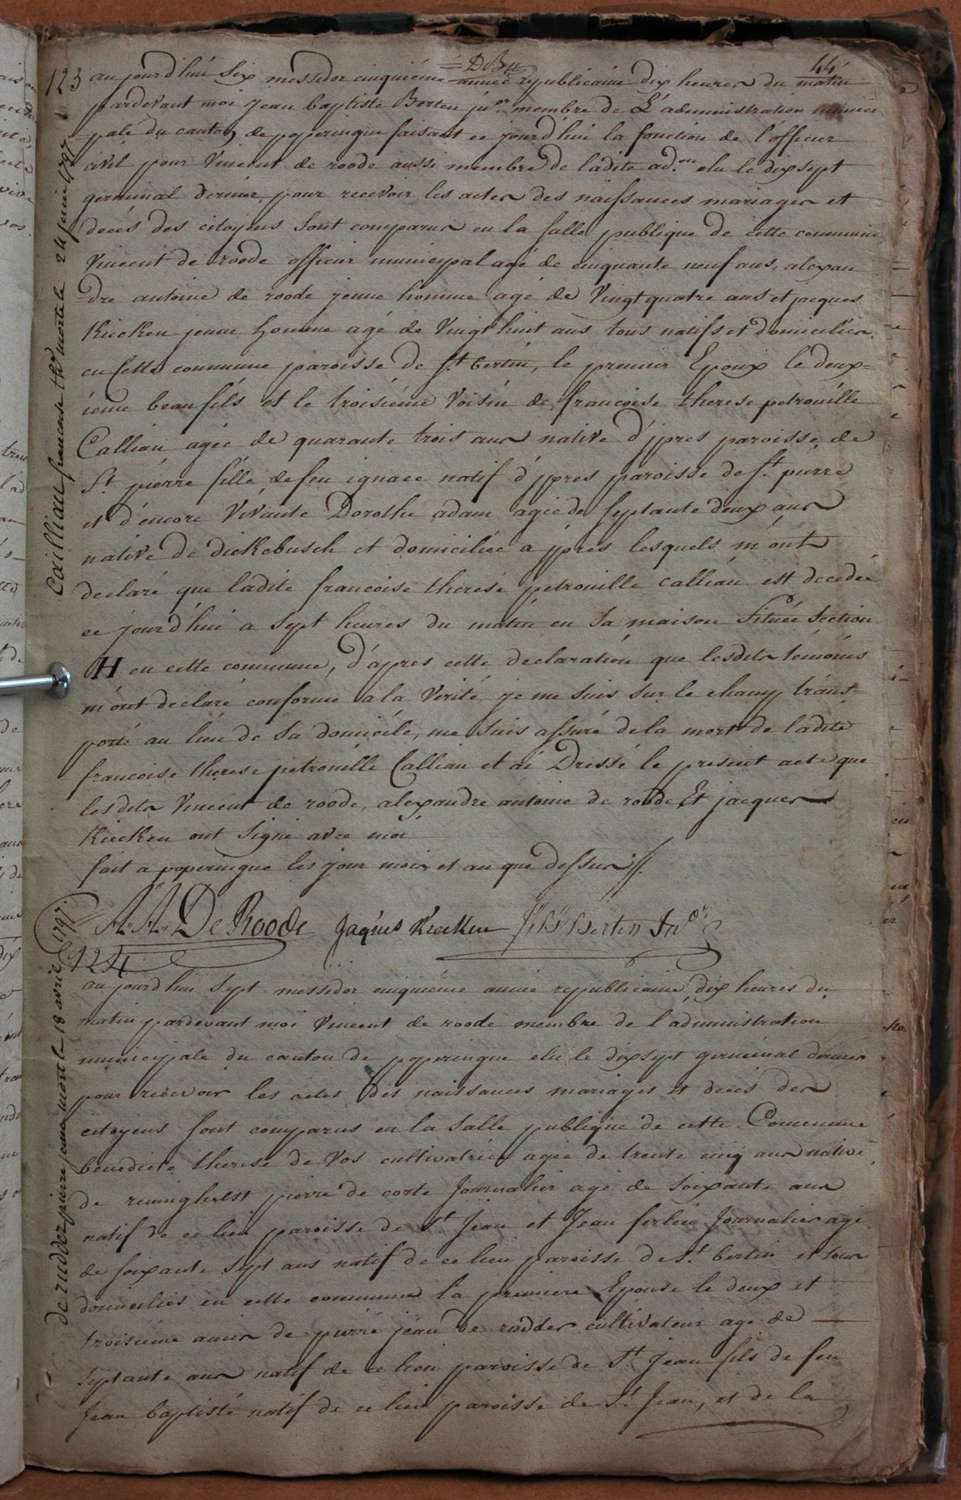 44
123 aujourd'hui six messidor cinquiéme année republicaine dix heures du matin
pardevant moi jean baptiste Berten jn.or membre de L'administration munici
pale du canton de poperingue faisant ce jourd'hui la fonction de l'officier
civil pour vincent de roode aussi membre de ladite ad.on elu le dixsept
germinal dernier pour recevoir les actes des naissances mariages et
decés des citoyens sont comparus en la salle publique de cette commune
vincent de roode officier municipal agé de cinquante neuf ans, alexan
dre antoine de roode jeune homme agé de vingtquatre ans et jacques
Kiecken jeune homme agé de vingt huit ans tous natifs et domiciliés
en cette commune paroisse de st bertin, le premier Epoux le deux=
ieme beau fils et le troisiéme voisin de francoise therese petronille
Calliau agée de quarante trois ans native d'ypres paroisse de
St. pierre fille de feu ignace natif d'ypres paroisse de st. pierre
et d'encore vivante Dorothé adam agée de septante deux ans
native de dickebusch et domiciliée a ypres lesquels m'ont
declaré que ladite francoise therese petronille calliau est decedée
ce jourd'hui a sept heures du matin en sa maison située section
H en cette commune, d'apres cette declaration que lesdits temoins
m'ont declaré conforme a la verité je me suis sur le champ trans-
porté au lieu de sa domicile, me suis assuré de la mort de ladite
francoise therese petronille Calliau et ai Dressé le present acte que
lesdits vincent de roode, alexandre antoine de roode Et jacques
Kiecken ont signé avec moi
fait a poperingue les jour mois et an que dessus //
A: A: De Roode Jaques Kiecken J: B: Berten Jn.or
Cailliau francoise th. morte le 24 juin 1797
124
aujourd'hui sept messidor cinquiéme année republicaine dix heures du
matin pardevant moi vincent de roode membre de l'administration
municipale du canton de poperingue elu le dixsept germinal dernier
pour recevoir les actes des naissances mariages et decés des
citoyens sont comparus en la salle publique de cette Commune
benedicte therese de vos cultivatrice agée de trente cinq ans native
de reninghelst pierre de corte journalier agé de soixante ans
natif de ce lieu paroisse de St Jean et Jean journalier agé
de soixante sept ans natif de ce lieu paroisse de St. bertin et tous
domiciliés en cette commune la premiere Epouse le deux et
troisieme amis de pierre jean de rudder cultivateur agé de
septante ans natif de ce lieu paroisse de St Jean fils de feu
Jean baptiste natif de ce lieu paroisse de St. Jean, et de la
de rudder pierre jean mort le 18 avril 1797